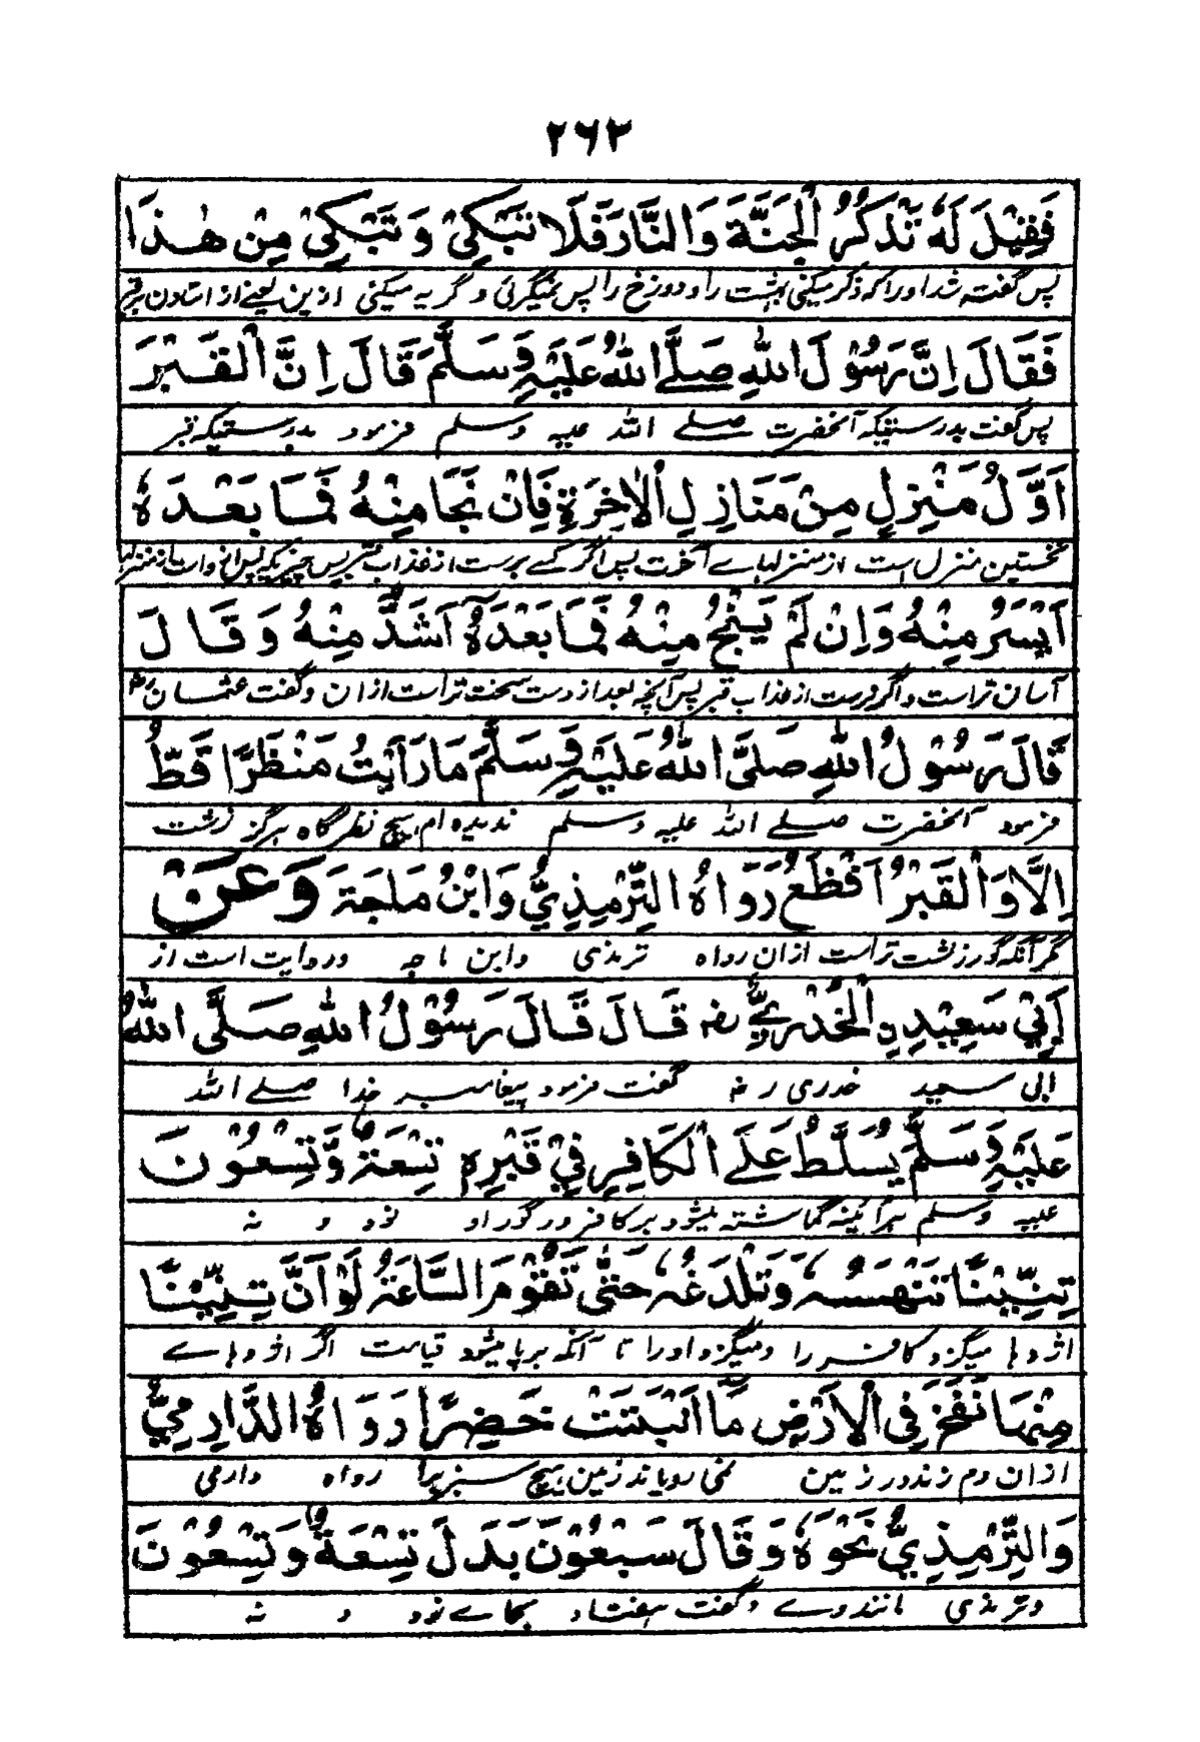 ۲۶۳
فَقِيْلَ لَهٗ تَذْكُرُ الْجَنَّةَ وَالنَّارَ فَلَا تَبْكِيْ وَ تَبْكِيْ مِنْ هٰذَا
پس گفته شد او را که ذکر میکنی بهشت را و دوزخ را پس نمیگرئی و گریه میکنی ازین یعنے از استادن بر قبر
فَقَالَ اِنَّ رَسُوْلَ اللهِ صَلَّے اللهُ عَلَيْهِ وَسَلَّمَ قَالَ اِنَّ الْقَبْرَ
پس گفت بدرستیکه آنحضرت صلے الله علیه وسلم فرمود بدرستیکه قبر
اَوَّلُ مَنْزِلٍ مِنْ مَنَازِلِ الْاٰخِرَةِ فَاِنْ نَجَا مِنْهُ فَمَا بَعْدَهٗ
نخستین منزل است از منزلهاے آخرت پس اگر کسے برست از عذاب قبر پس چیزیکه پس از وست از منزلها
اَيْسَرُ مِنْهُ وَاِنْ لَمْ يَنْجُ مِنْهُ فَمَا بَعْدَهٗ اَشَدُّ مِنْهُ وَ قَالَ
آسان تر است و اگر نرست از عذاب قبر پس آنچه بعد از دست سخت تر است ازان و گفت عثمان رض
قَالَ رَسُوْلُ اللهِ صَلَّى اللهُ عَلَيْهِ وَسَلَّمَ مَا رَاَيْتُ مَنْظَرًا قَطُّ
فرمود آنحضرت صلے الله علیه وسلم ندیده ام هیچ نظرگاه هرگز زشت
اِلَّا وَالْقَبْرُ اَفْظَعُ رَوَاهُ التِّرْمِذِيُّ وَابْنُ مَاجَةَ وَعَنْ
مگر آنکه گور زشت تر است ازان رواه ترمذی وابن ماجه و روایت است از
اَبِيْ سَعِيْدِنِ الْخُدْرِيِّ رض قَالَ قَالَ رَسُوْلُ اللهِ صَلَّى اللهُ
ابی سعید خدری رض گفت فرمود پیغامبر خدا صلے الله
عَلَيْهِ وَسَلَّمَ يُسَلَّطُ عَلَے الْكَافِرِ فِيْ قَبْرِهٖ تِسْعَةٌ وَّتِسْعُوْنَ
علیه وسلم هرآئینه گماشته میشود بر کافر در گور او نود و نه
تِنِّيْنًا تَنْهَسُهٗ وَتَلْدَغُهٗ حَتّٰى تَقُوْمَ السَّاعَةُ لَوْ اَنَّ تِنِّيْنًا
اژدها میگزد کافر را و میگزد او را تا آنکه برپا میشود قیامت اگر اژدهاے
مِنْهَا نَفَخَ فِي الْاَرْضِ مَا اَنْبَتَتْ خَضِرًا رَوَاهُ الدَّارِمِيُّ
ازان دم زند در زمین نمی رویاند زمین هیچ سبز را رواه دارمی
وَالتِّرْمِذِيُّ نَحْوَهٗ وَ قَالَ سَبْعُوْنَ بَدَلَ تِسْعَةٌ وَتِسْعُوْنَ
و ترمذی مانند وے و گفت هفتاد بجاے نود و نه